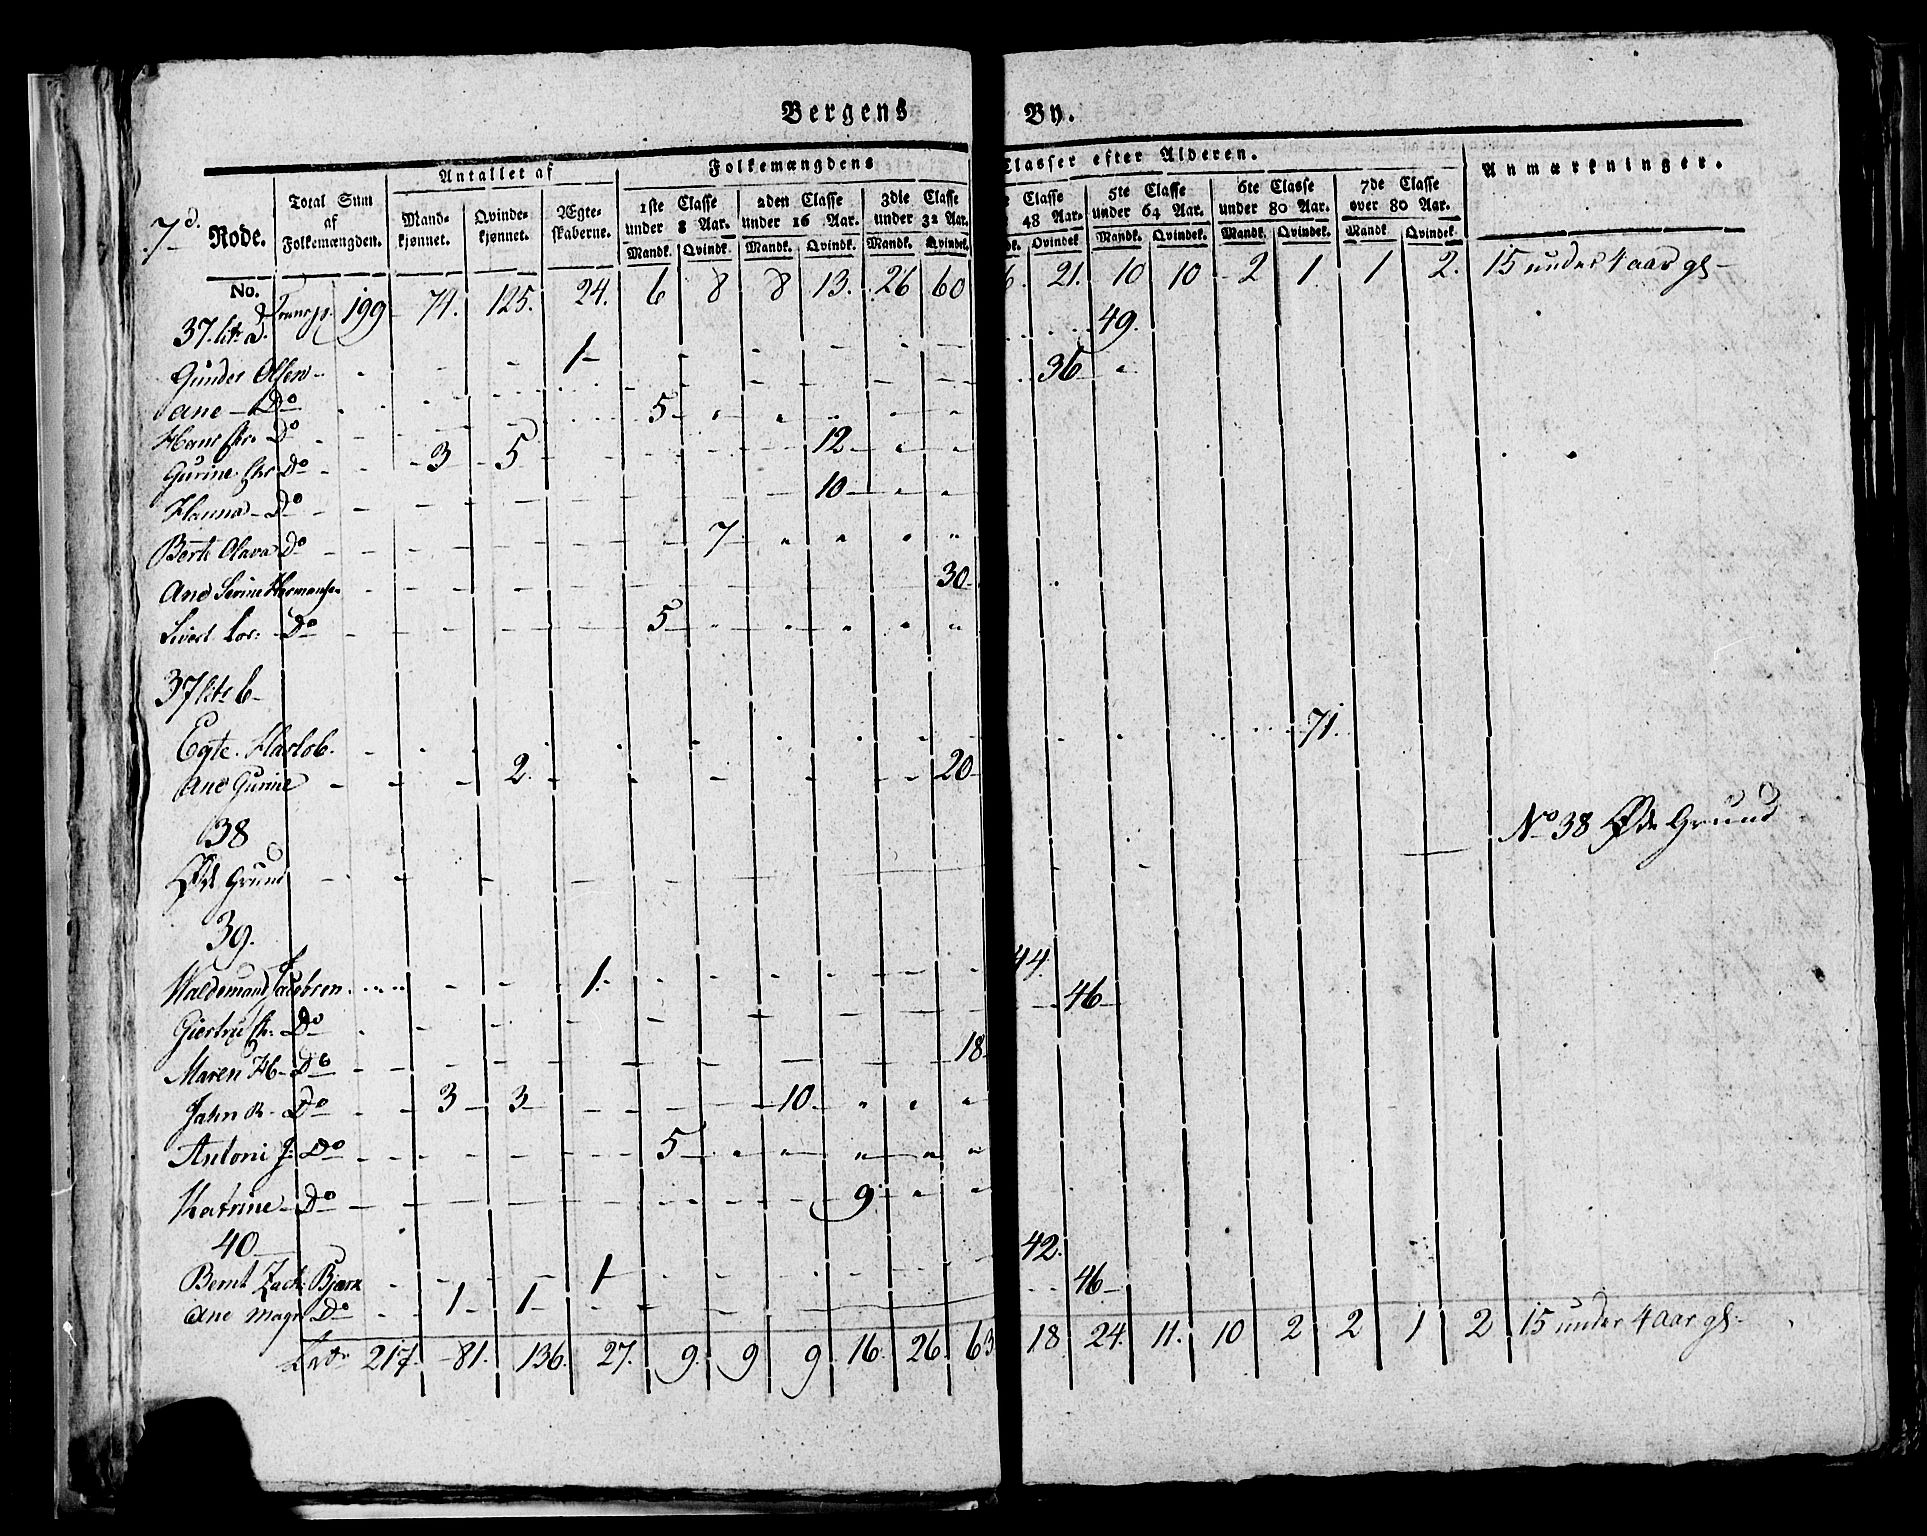 Bergens By.
7d. Rode. Total Sum af Folkemængden. Antallet af Mandkjønnet. Qvindekjønnet. Ægteskaberne. Folkemængdens Classer efter Alderen. Anmærkninger.
1ste Classe under 8 Aar. 2den Classe under 16 Aar. 3die Classe under 32 Aar. Classe 48 Aar. 5te Classe under 64 Aar. 6te Classe under 80 Aar. 7de Classe over 80 Aar.
Mandk. Qvindk. Mandk. Qvindk. Mandk. Qvindek. dk. Qvindek. Mandk. Qvindk. Mandk. Qvindk. Mandk Qvindk.
No. Transp. 199 74. 125. 24. 6 8 8 13. 26 60 6. 21. 10 10 2 1. 1 2. 15 under 4 aar gl
37. litr a. 49.
Gunder Olsen 1 36
ane Do
Hans Chr. Do 5
Gurine Chr Do 3 5 12
Hanna Do 10
Berte Olava Do 7
Ane Sevrine Hermansen 30
Sivert Lor: Do 5
37 litr b
Egte. Harlob. 71.
Ane Gurine 2. 20
38 No 38 Øde Grund
Øde Grund
39.
Waldemand Jacobsen 1. 44.
Giertru Chr. Do 46
Maren H Do 18
Jahn R. Do 3 3 10
Antoni J: Do 5
Katrine Do 9
40
Bernt Zach: Bjørn 1 42.
ane Magr. Do 1 1 46
Latr 217. 81. 136. 27. 9. 9 9 16 26. 63 18 24. 11. 10 2 2 1 2 15 under 4 aar gl.